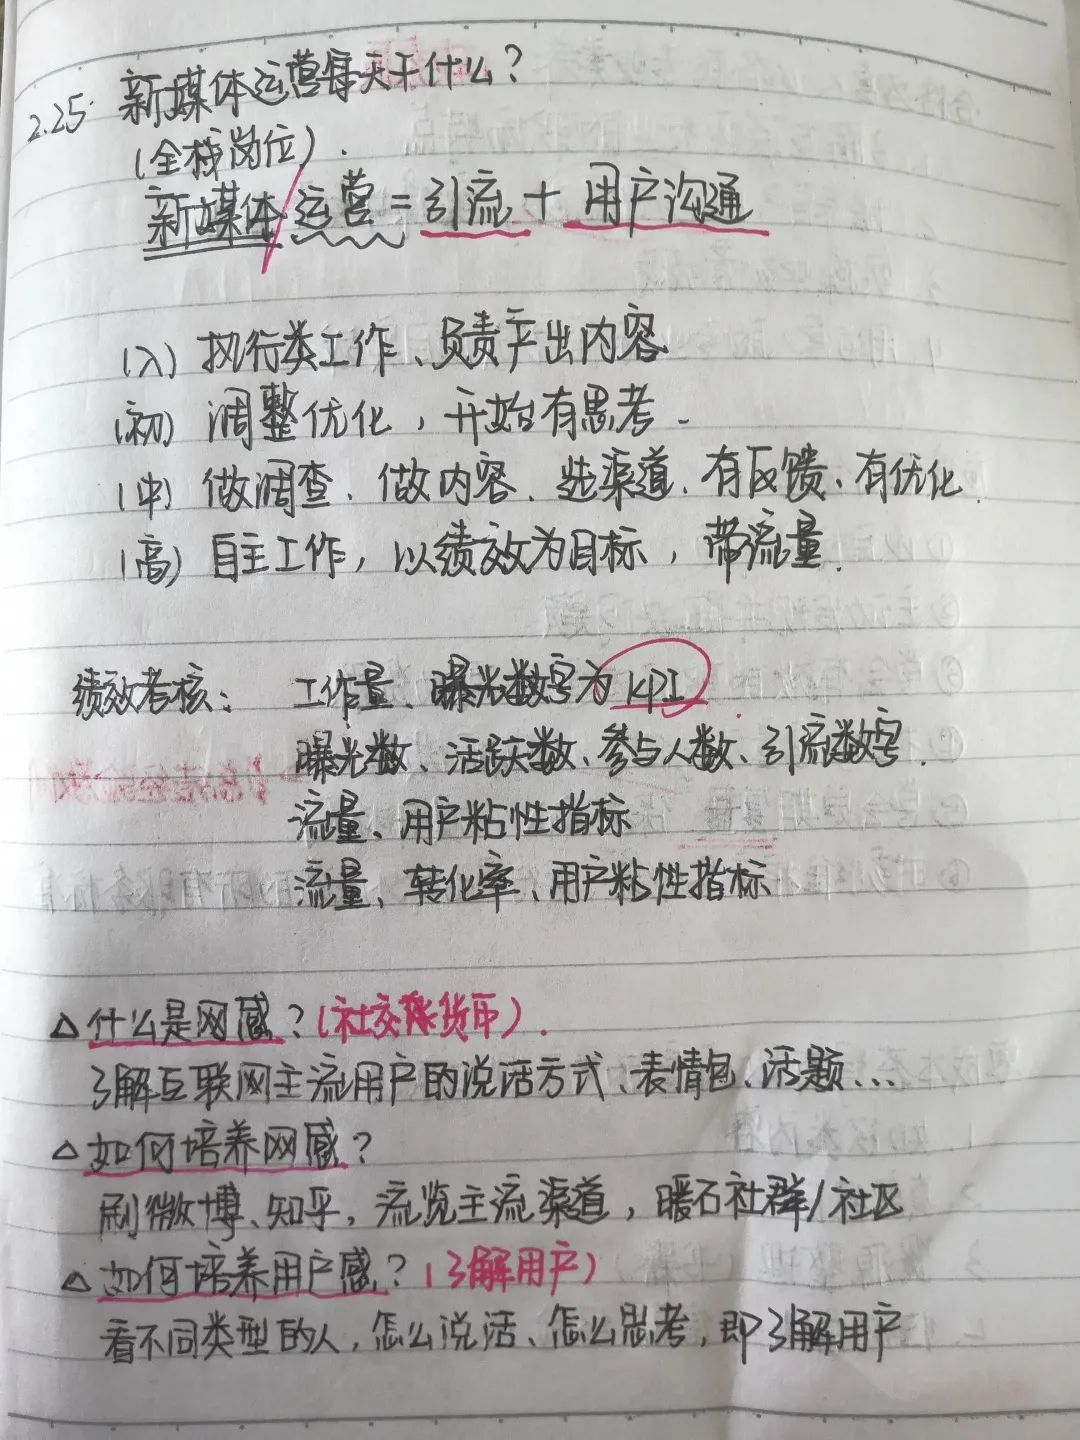 2.25. 新媒体运营每天干什么？
(全栈岗位).
新媒体/运营 = 引流 + 用户沟通
(入) 执行类工作、负责产出内容
(初) 调整优化，开始有思考.
(中) 做调查、做内容、选渠道、有反馈、有优化.
(高) 自主工作，以绩效为目标，带流量.
绩效考核：工作量、曝光数字为KPI
曝光数、活跃数、参与人数、引流数字.
流量、用户粘性指标
流量、转化率、用户粘性指标
△ 什么是网感？(社交货币).
了解互联网主流用户的说话方式、表情包、话题...
△ 如何培养网感？
刷微博、知乎，流览主流渠道，暖石社群/社区
△ 如何培养用户感？(了解用户)
看不同类型的人，怎么说话、怎么思考，即了解用户